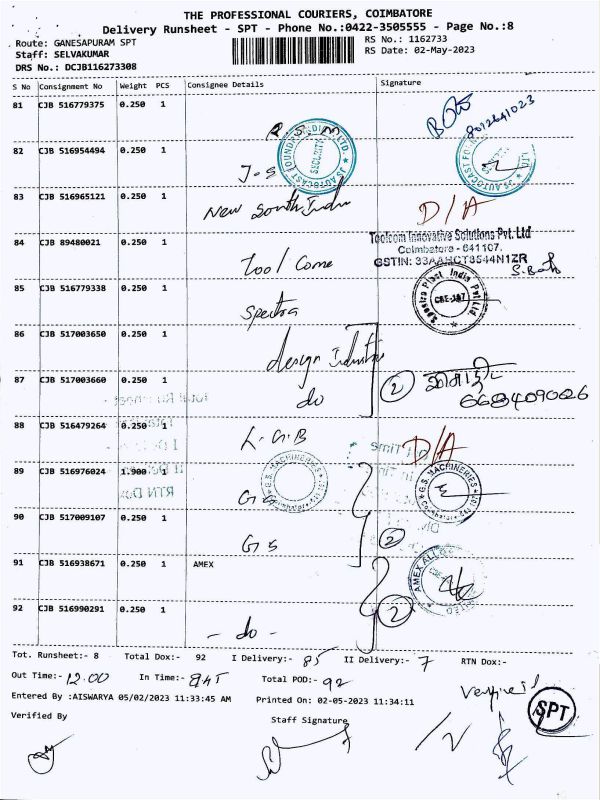 THE PROFESSIONAL COURIERS, COIMBATORE
Delivery Runsheet - SPT - Phone No.:0422-3505555 - Page No.:8
Route: GANESAPURAM SPT RS No.: 1162733
Staff: SELVAKUMAR RS Date: 02-May-2023
DRS No.: DCJB116273308
S No Consignment No Weight PCS Consignee Details Signature
81 CJB 516779375 0.250 1
8012641023
82 CJB 516954494 0.250 1 J-S
SECURITY
83 CJB 516965121 0.250 1 New South India D/A
84 CJB 89480021 0.250 1 Tool Come
Toolcom Innovative Solutions Pvt. Ltd
Coimbatore - 641107.
85 CJB 516779338 0.250 1 Spectra
86 CJB 517003650 0.250 1 design Industries
87 CJB 517003660 0.250 1 do 2
88 CJB 516479264 0.250 1 L.G.B D/A
89 CJB 516976024 1.900 1 GS
G.S. MACHINERIES G.S. MACHINERIES
90 CJB 517009107 0.250 1 GS 2
91 CJB 516938671 0.250 1 AMEX
92 CJB 516990291 0.250 1 - do - 2
Tot. Runsheet:- 8 Total Dox:- 92 I Delivery:- 85 II Delivery:- 7 RTN Dox:-
Out Time:- 12.00 In Time:- Total POD:- 92
Entered By :AISWARYA 05/02/2023 11:33:45 AM Printed On: 02-05-2023 11:34:11
Verified By Staff Signature
SPT